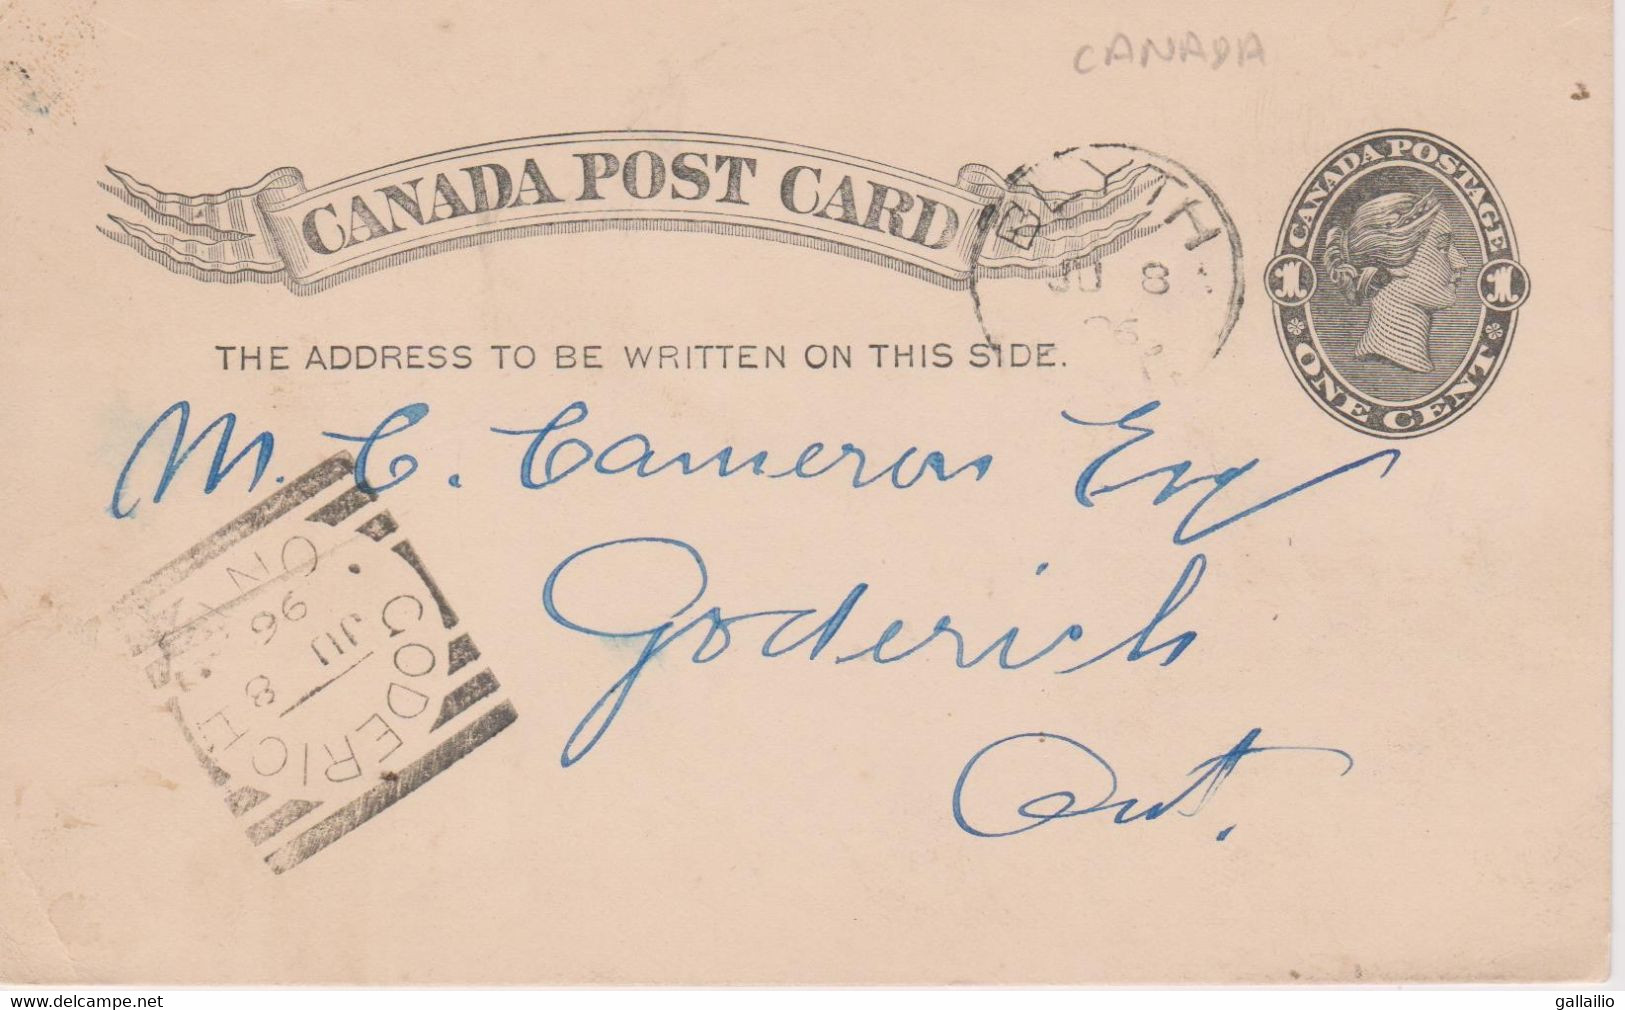 CANADA
CANADA POST CARD
CANADA POSTAGE
1 1
ONE CENT
BLYTH
JU 8
96
THE ADDRESS TO BE WRITTEN ON THIS SIDE.
M. C. Cameron Esq
Goderich
Ont.
GODERICH
JU 8
96
ONT
www.delcampe.net
gallailio